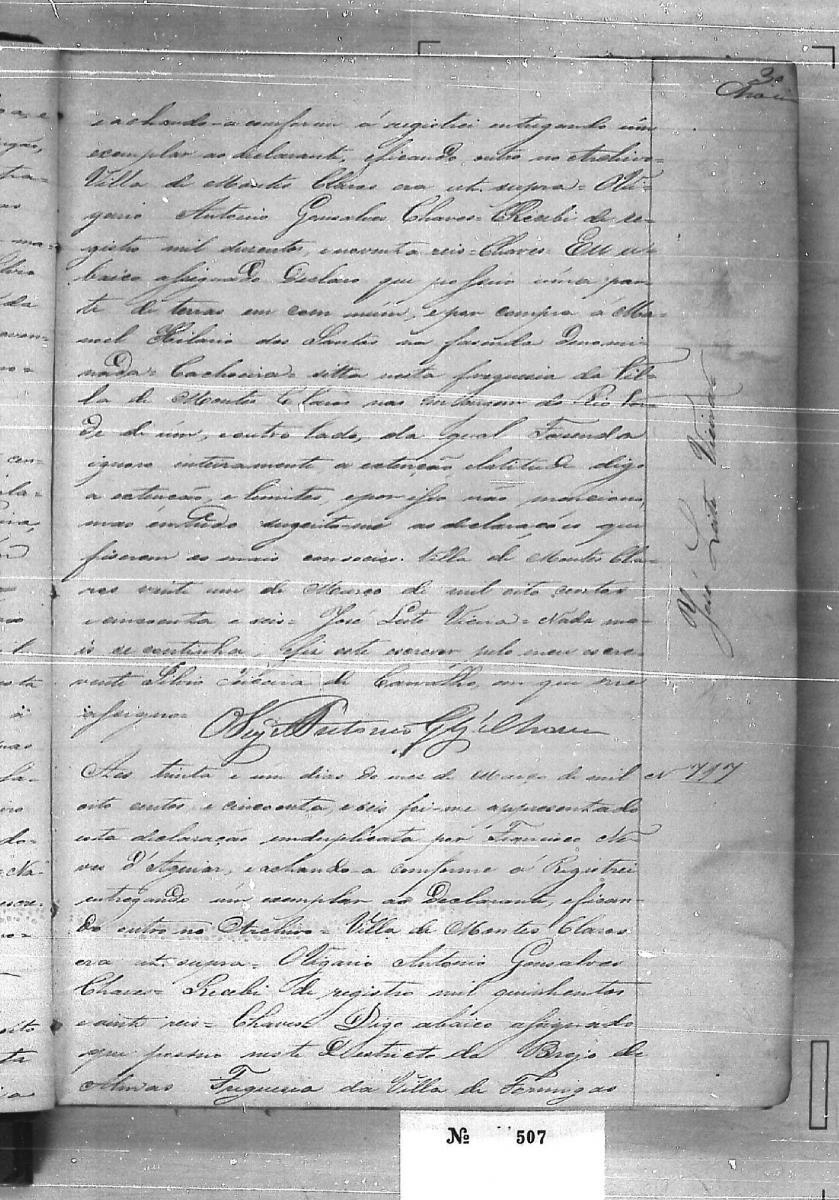 30
e achando-a conforme á registrei entregando úm
exemplar ao declarante, eficando outro no Archivo=
Villa de Montes Claros era ut. supra= Ole-
gario Antonio Gonsalves Chaves= Recebi de re-
gistro mil dusentos, e noventa reis= Chaves= Eu a-
baico assignado Declaro que possuio uma par-
te de terras em com múm, e por compra á Ma-
nuel Hilario dos Santos na fasenda denomi-
nada= Cachoeira= sitta nesta freguesia da Vil-
la de Montes Claros nas do Rio Ver-
de de úm, e outro lado, da qual Fasenda
ignoro inteiramente a extenção elatitude digo
a extenção, e limites, epor isso não menciono,
mas emtudo sugeito-me as declaraçoes que
fiserem os mais consocios. Villa de Montes Cla-
ros vinte úm de Março de mil oito centos
e cincoenta e seis= José Leite Vieira= Nada ma-
is se continha, efis este escrever pelo meu escre-
vente Silvio Teixeira de Carvalho, em que me
assigno=
José Leite Vieira
Aos trinta e um dias do mes de Março de mil
Nº 747
oito centos e cincoenta, eseis foi-me appresentado
esta declaração emduplicata por Francisco Ne-
ves d'Aguiar, e achando-a conforme á Registrei
entregando úm exemplar ao Declarante, efican-
do outro no Archivo= Villa de Montes Claros
era ut. supra= Olegario Antonio Gonsalves
Chaves= Recebi de registro mil quinhentos
e vinte reis= Chaves= Digo abaico assignado
que possuo neste Destricto do Brejo de
Almas Freguesia da Villa de Formigas
Nº 507